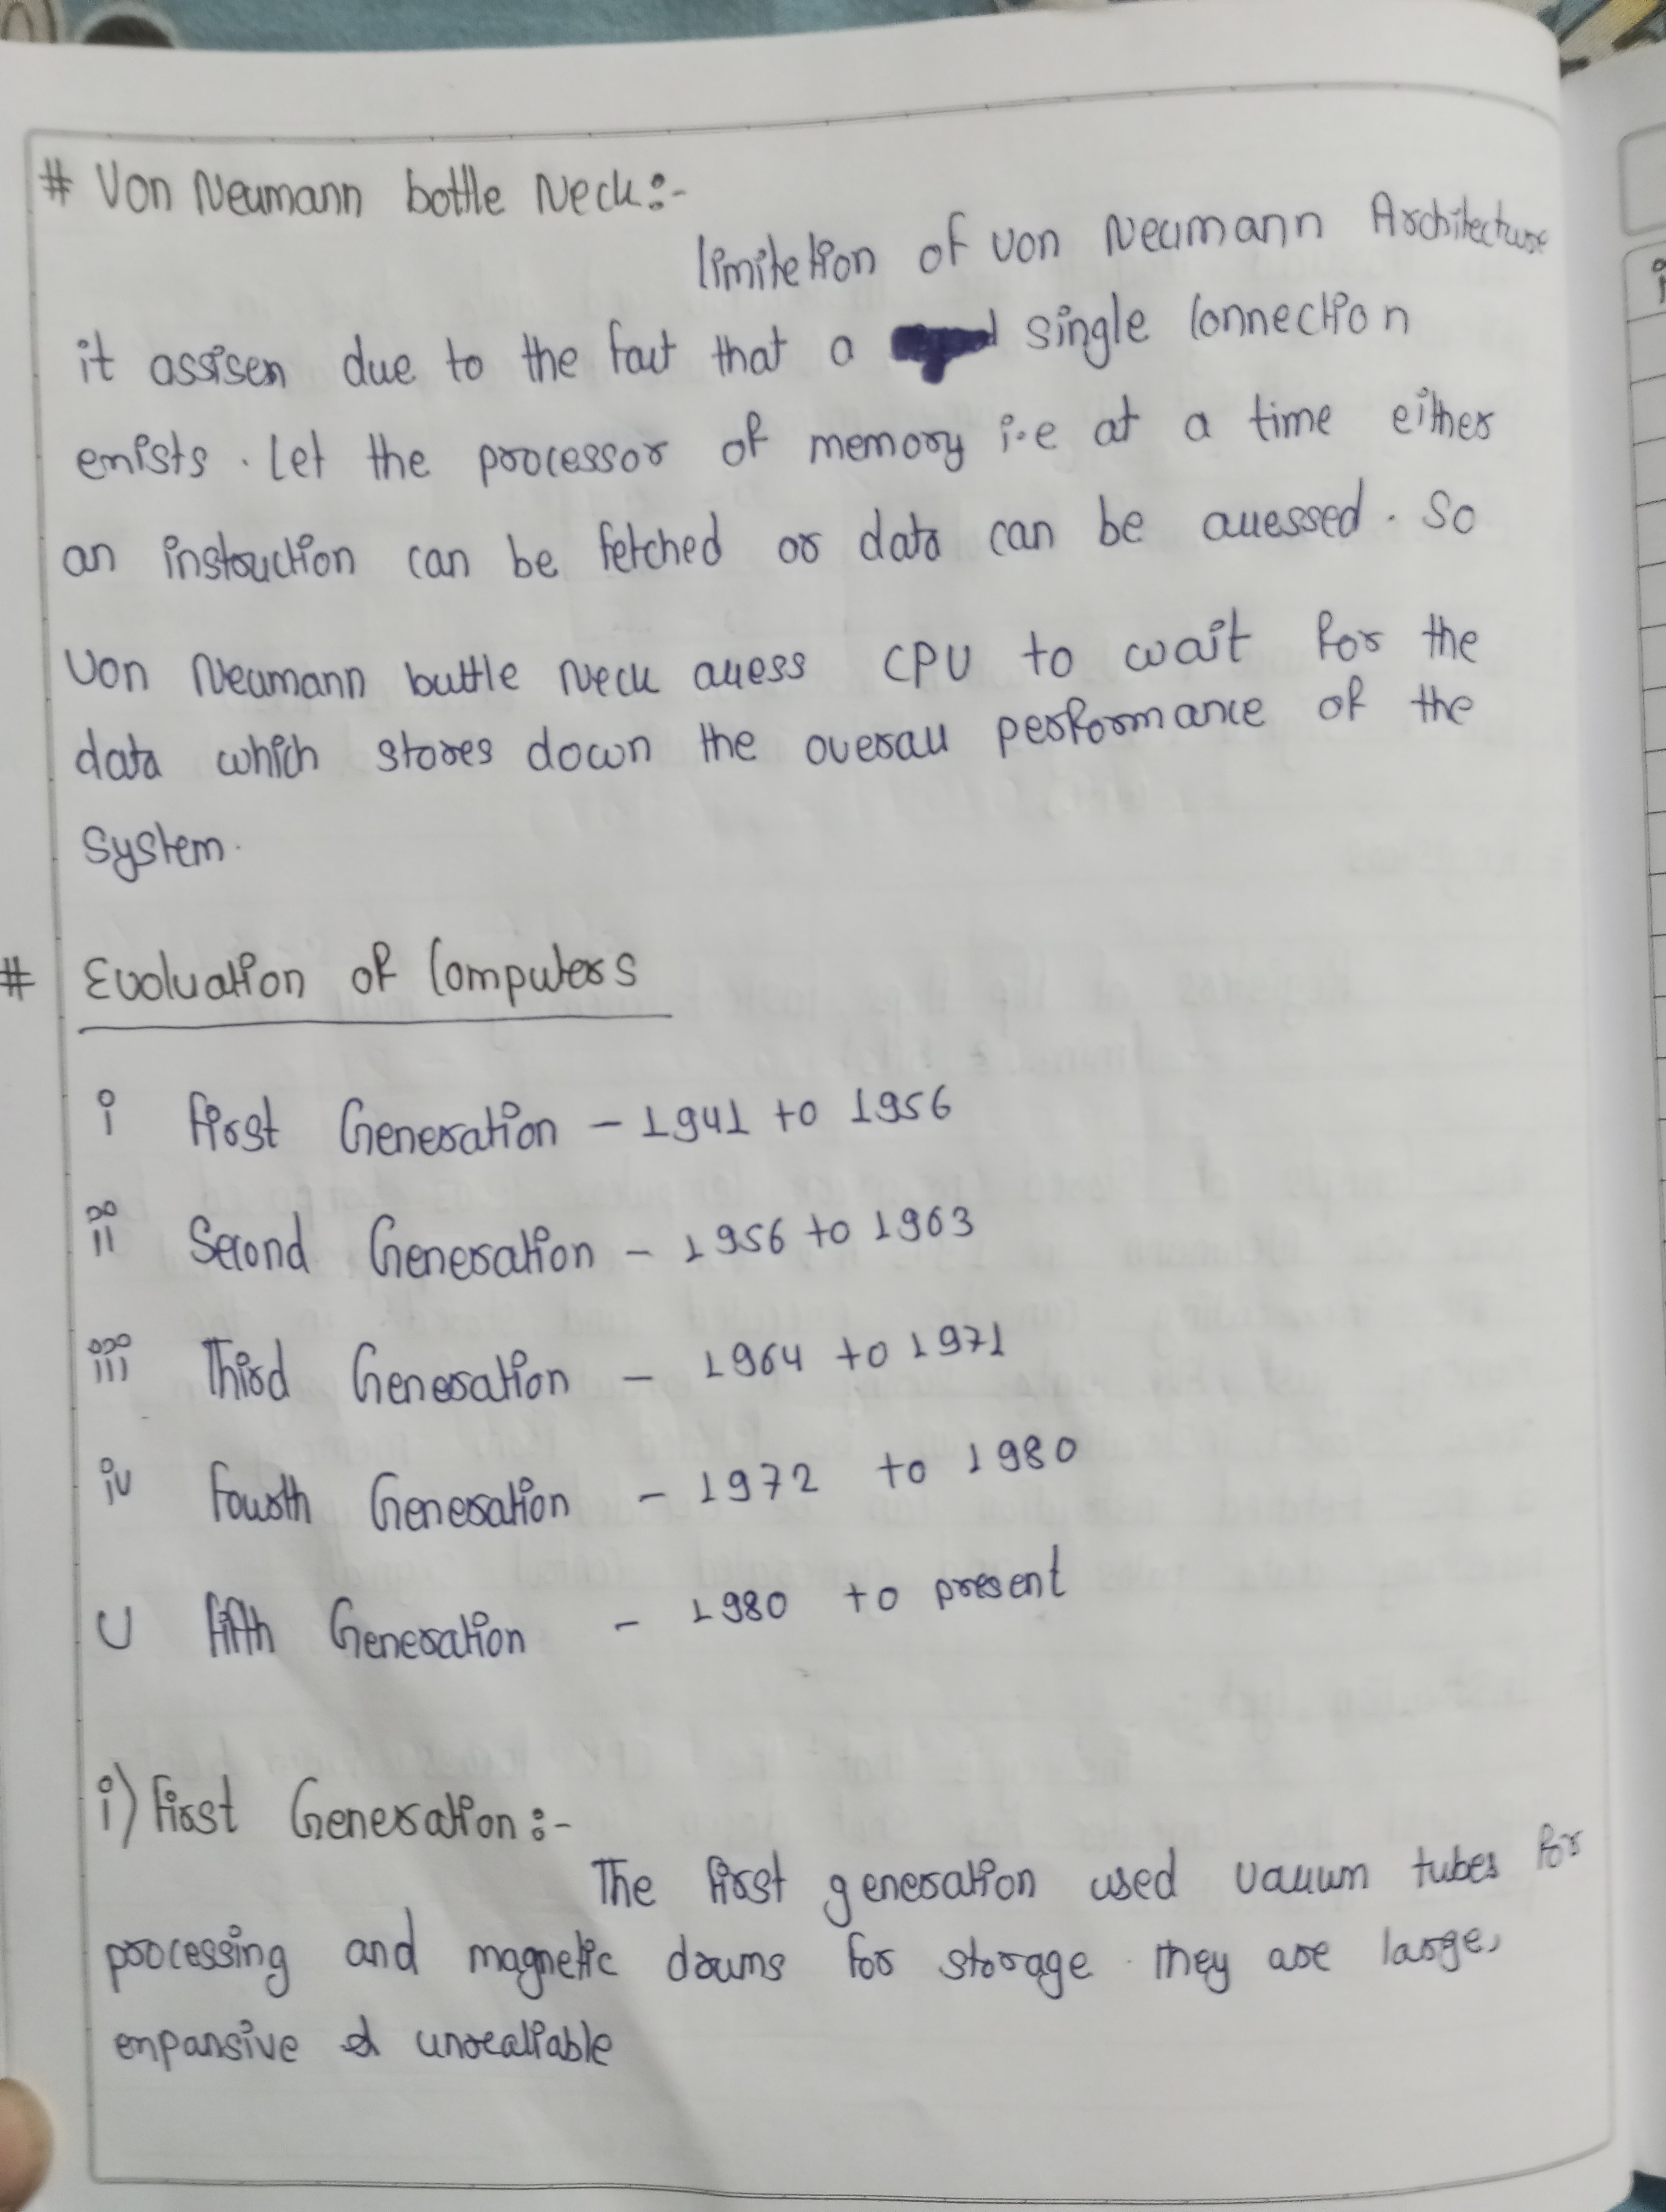 # Von Neumann bottle Neck:-
limitetion of von Neumann Architecture
it assisen due to the fact that a single connection
enists. Let the processor of memory i.e at a time either
an instruction can be fetched or data can be auessed. So
Von Neumann buttle Neck auess CPU to wait for the
data which stores down the overall performance of the
system.
# Evoluation of Computers
i First Generation - 1941 to 1956
ii Second Generation - 1956 to 1963
iii Third Generation - 1964 to 1971
iv Fourth Generation - 1972 to 1980
v Fifth Generation - 1980 to present
i) First Generation:-
The first generation used vauum tubes for
processing and magnetic drums for storage. They are large,
enpansive & unrealiable